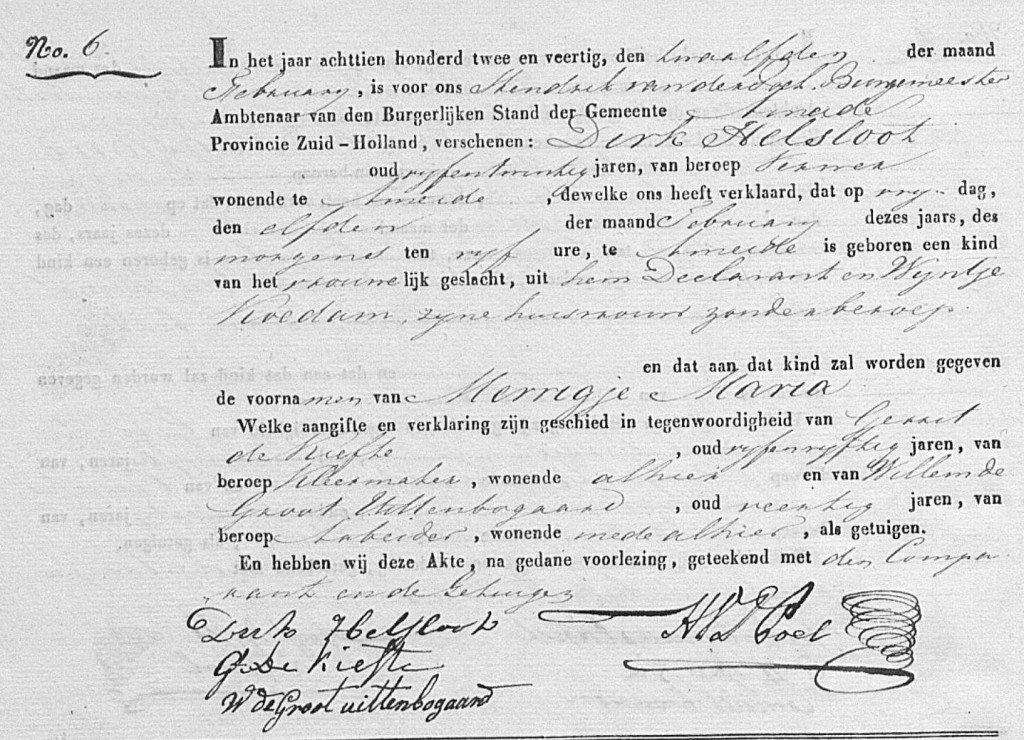 No. 6.
In het jaar achttien honderd twee en veertig, den twaalfden der maand
February, is voor ons Hendrik van der Poel. Burgemeester
Ambtenaar van den Burgerlijken Stand der Gemeente Ameide
Provincie Zuid-Holland, verschenen: Dirk Helsloot
oud vyfentwintig jaren, van beroep
wonende te Ameide, dewelke ons heeft verklaard, dat op vry dag,
den elfden der maand February dezes jaars, des
morgens ten vyf ure, te Ameide is geboren een kind
van het vrouwelijk geslacht, uit hem Declarant en Wyntje
Koedam, zyne huisvrouw zonder beroep.
en dat aan dat kind zal worden gegeven
de voornamen van Merrigje Maria
Welke aangifte en verklaring zijn geschied in tegenwoordigheid van Gerrit
de Kiefte, oud vyfenvyftig jaren, van
beroep Kleermaker, wonende alhier en van Willem de
Groot Uittenbogaard, oud veertig jaren, van
beroep Arbeider, wonende mede alhier, als getuigen.
En hebben wij deze Akte, na gedane voorlezing, geteekend met den Compa
rant en de Getuigen
Dirk Helsloot
HVDPoel
G. De Kiefte
W de Groot uittenbogaard